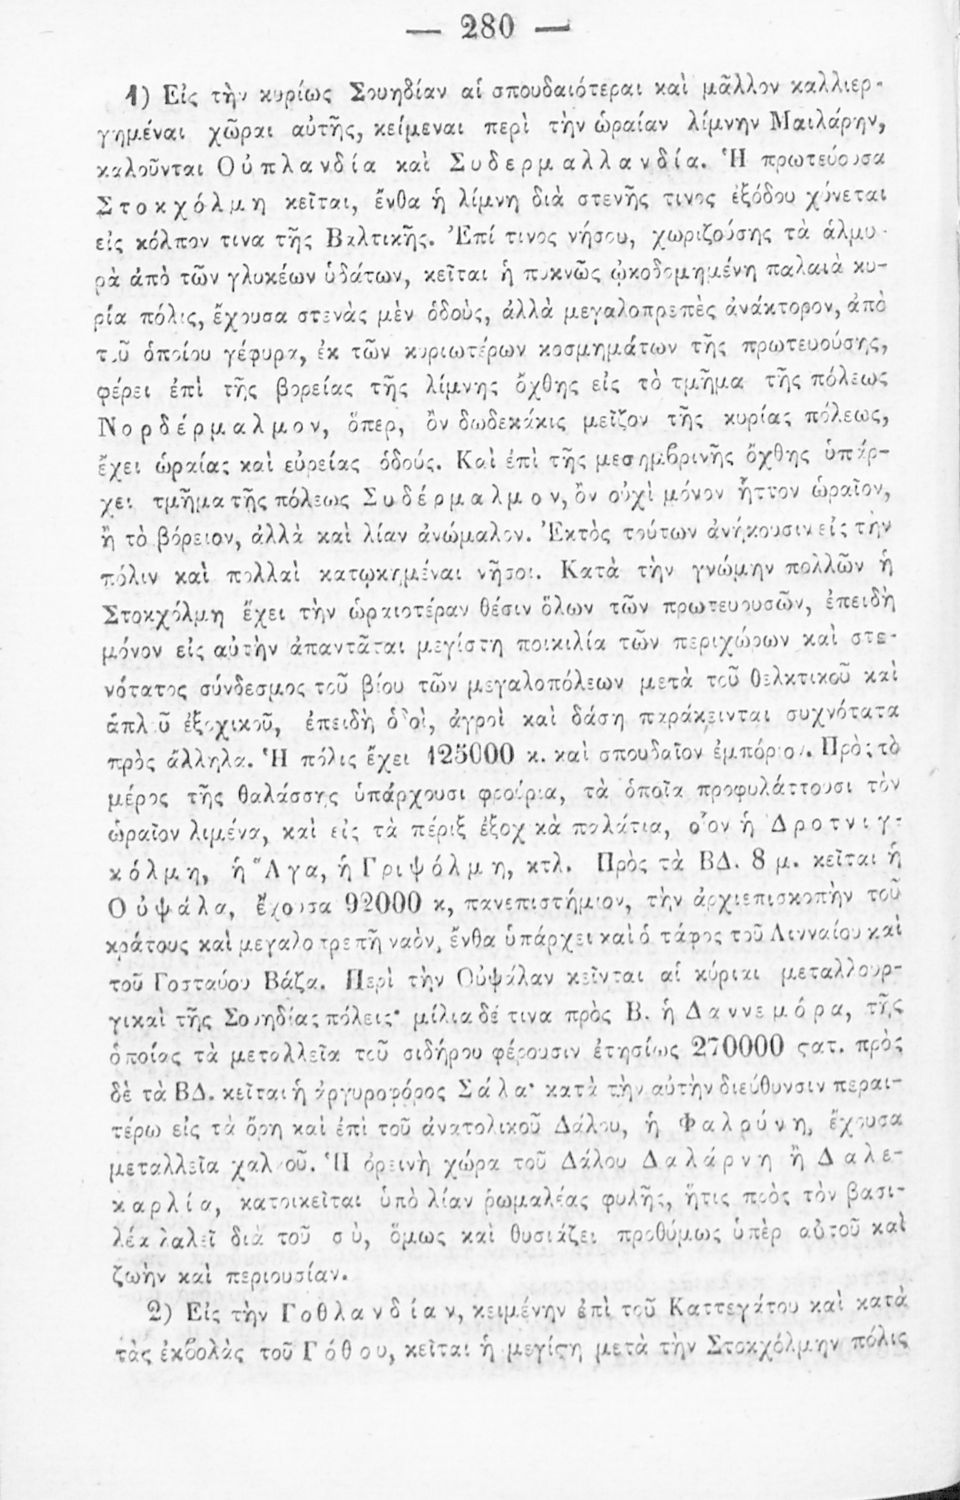 — 280 —
1) Εἰς τὴν κυρίως Σουηδίαν αἱ σπουδαιότεραι καὶ μᾶλλον καλλιερ-
γημέναι χῶραι αὐτῆς, κείμεναι περὶ τὴν ὡραίαν λίμνην Μαιλάρην,
καλοῦνται Οὐπλανδία καὶ Συδερμαλλανδία. Ἡ πρωτεύουσα
Στοκχόλμη κεῖται, ἔνθα ἡ λίμνη διὰ στενῆς τινος ἐξόδου χύνεται
εἰς κόλπον τινα τῆς Βαλτικῆς. Ἐπί τινος νήσου, χωριζούσης τὰ ἁλμυ-
ρὰ ἀπὸ τῶν γλυκέων ὑδάτων, κεῖται ἡ πυκνῶς ᾠκοδομημένη παλαιὰ κυ-
ρία πόλις, ἔχουσα στενὰς μὲν ὁδοὺς, ἀλλὰ μεγαλοπρεπὲς ἀνάκτορον, ἀπὸ
τοῦ ὁποίου γέφυρα, ἐκ τῶν κυριωτέρων κοσμημάτων τῆς πρωτευούσης,
φέρει ἐπὶ τῆς βορείας τῆς λίμνης ὄχθης εἰς τὸ τμῆμα τῆς πόλεως
Νορδέρμαλμον, ὅπερ, ὂν δωδεκάκις μεῖζον τῆς κυρίας πόλεως,
ἔχει ὡραίας καὶ εὐρείας ὁδούς. Καὶ ἐπὶ τῆς μεσημβρινῆς ὄχθης ὑπάρ-
χει τμῆμα τῆς πόλεως Συδέρμαλμον, ὂν οὐχὶ μόνον ἧττον ὡραῖον,
ἢ τὸ βόρειον, ἀλλὰ καὶ λίαν ἀνώμαλον. Ἐκτὸς τούτων ἀνήκουσιν εἰς τὴν
πόλιν καὶ πολλαὶ κατῳκημέναι νῆσοι. Κατὰ τὴν γνώμην πολλῶν ἡ
Στοκχόλμη ἔχει τὴν ὡραιοτέραν θέσιν ὅλων τῶν πρωτευουσῶν, ἐπειδὴ
μόνον εἰς αὐτὴν ἀπαντᾶται μεγίστη ποικιλία τῶν περιχώρων καὶ στε-
νότατος σύνδεσμος τοῦ βίου τῶν μεγαλοπόλεων μετὰ τοῦ θελκτικοῦ καὶ
ἁπλοῦ ἐξοχικοῦ, ἐπειδὴ ὁδοὶ, ἀγροὶ καὶ δάση παράκεινται συχνότατα
πρὸς ἄλληλα. Ἡ πόλις ἔχει 125000 κ. καὶ σπουδαῖον ἐμπόριον. Πρὸς τὸ
μέρος τῆς θαλάσσης ὑπάρχουσι φρούρια, τὰ ὁποῖα προφυλάττουσι τὸν
ὡραῖον λιμένα, καὶ εἰς τὰ πέριξ ἐξοχικὰ παλάτια, οἷον ἡ Δροτνιγ-
κόλμη, ἡ Ἄγα, ἡ Γριψόλμη, κτλ. Πρὸς τὰ ΒΔ. 8 μ. κεῖται ἡ
Οὐψάλα, ἔχουσα 92000 κ, πανεπιστήμιον, τὴν ἀρχιεπισκοπὴν τοῦ
κράτους καὶ μεγαλοπρεπῆ ναὸν, ἔνθα ὑπάρχει καὶ ὁ τάφος τοῦ Λινναίου καὶ
τοῦ Γοσταύου Βάζα. Περὶ τὴν Οὐψάλαν κεῖνται αἱ κύριαι μεταλλουρ-
γικαὶ τῆς Σουηδίας πόλεις· μίλια δέ τινα πρὸς Β. ἡ Δαννεμόρα, τῆς
ὁποίας τὰ μεταλλεῖα τοῦ σιδήρου φέρουσιν ἐτησίως 270000 στατ. πρὸς
δὲ τὰ ΒΔ. κεῖται ἡ ἀργυροφόρος Σάλα· κατὰ τὴν αὐτὴν διεύθυνσιν περαι-
τέρω εἰς τὰ ὄρη καὶ ἐπὶ τοῦ ἀνατολικοῦ Δάλου, ἡ Φαλρύνη, ἔχουσα
μεταλλεῖα χαλκοῦ. Ἡ ὀρεινὴ χώρα τοῦ Δάλου Δαλάρνη ἢ Δαλε-
καρλία, κατοικεῖται ὑπὸ λίαν ῥωμαλέας φυλῆς, ἥτις πρὸς τὸν βασι-
λέα λαλεῖ διὰ τοῦ σὺ, ὅμως καὶ θυσιάζει προθύμως ὑπὲρ αὐτοῦ καὶ
ζωὴν καὶ περιουσίαν.
2) Εἰς τὴν Γοθλανδίαν, κειμένην ἐπὶ τοῦ Καττεγάτου καὶ κατὰ
τὰς ἐκβολὰς τοῦ Γόθου, κεῖται ἡ μεγίστη μετὰ τὴν Στοκχόλμην πόλις